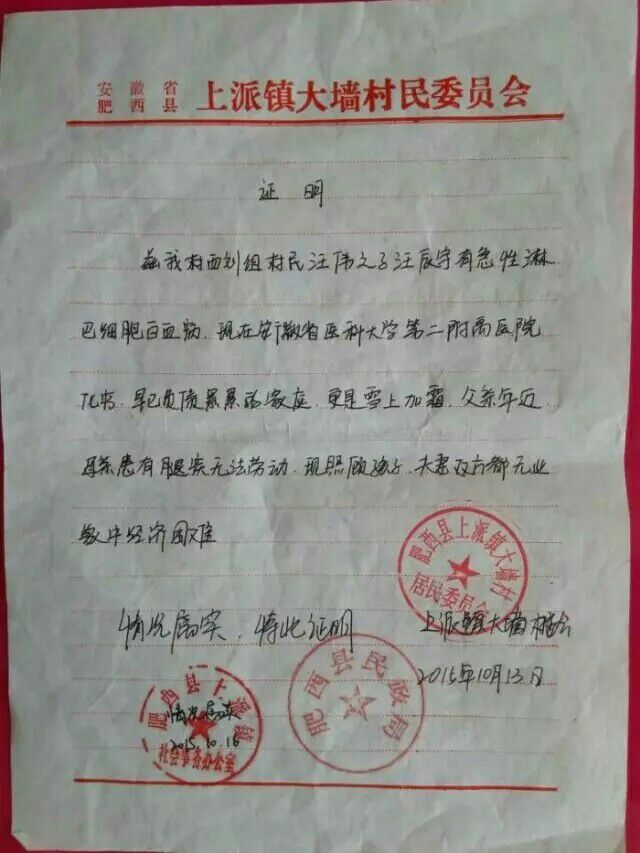 安徽省
肥西县
上派镇大墙村民委员会
证明
兹我村西刘组村民汪伟之子汪辰宇有急性淋
巴细胞白血病、现在安徽省医科大学第二附属医院
化疗、早已负债累累的家庭、更是雪上加霜、父亲年迈
母亲患有腿疾无法劳动、现照顾孩子、夫妻双方都无业
家中经济困难
肥西县上派镇大墙村
居民委员会
情况属实、特此证明
上派镇大墙村委会
2015年10月13日
肥西县民政局
肥西县上派镇
情况属实
2015.10.16
社会事务办公室